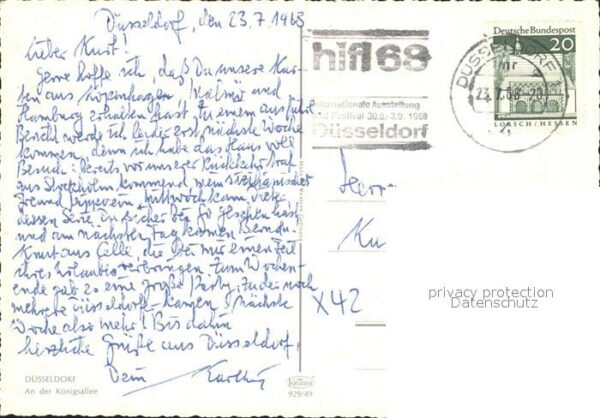 Düsseldorf, den 23.7.1968
Lieber Kurt!
Gerne hoffe ich, daß Du unsere Kar-
ten aus Kopenhagen, Malmö und
Hamburg erhalten hast. Zu einem ausführl.
Bericht werde ich leider erst nächste Woche
kommen, denn ich habe das Haus voll
Besuch. Bereits vor unserer Rückkehr traf
aus Stockholm kommend mein
Freund ein, Mittwoch kam
dessen
und am nächsten Tag kamen
Knut aus Celle, die bei mir einen Teil
ihres Urlaubes verbringen. Zum Wochen-
ende gab es eine große Party, zu der noch
mehrere Düsseldorfer kamen. Nächste
Woche also mehr! Bis dahin
herzliche Grüße aus Düsseldorf,
Dein
DÜSSELDORF
An der Königsallee
hifi 68
Internationale Ausstellung
Festival 30.8.-3.9.1968
Düsseldorf
DÜSSELDORF
23.7.68-20
Deutsche Bundespost
20
LORSCH/HESSEN
Herr
Ku
X42
privacy protection
Datenschutz
Krüger
929/49